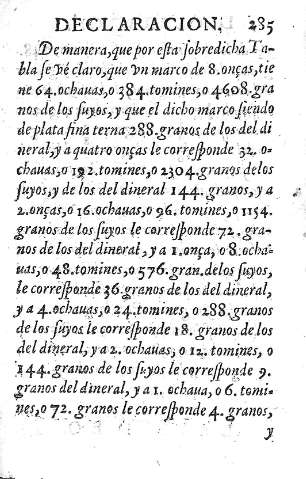 DECLARACION. 285
De manera, que por esta sobredicha Ta-
bla se vé claro, que vn marco de 8. onças, tie
ne 64. ochauas, o 384. tomines, o 4608. gra
nos de los suyos, y que el dicho marco siendo
de plata fina terna 288. granos de los del di
neral, y a quatro onças le corresponde 32. o-
chauas, o 192. tomines, o 2304. granos de los
suyos, y de los del dineral 144. granos, y a
2. onças, o 16. ochauas, o 96. tomines, o 1154.
granos de los suyos le corresponde 72. gra-
nos de los del dineral, y a 1. onça, o 8. ocha-
uas, o 48. tomines, o 576. gran. de los suyos,
le corresponde 36. granos de los del dineral,
y a 4. ochauas, o 24. tomines, o 288. granos
de los suyos le corresponde 18. granos de los
del dineral, y a 2. ochauas, o 12. tomines, o
144. granos de los suyos le corresponde 9.
granos del dineral, y a 1. ochaua, o 6. tomi-
nes, o 72. granos le corresponde 4. granos,
y